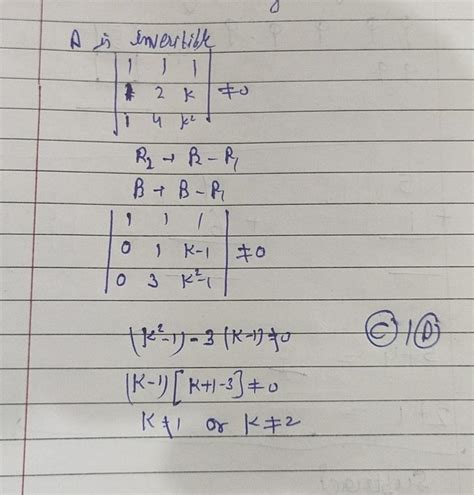 A is invertible
| 1 1 1 |
| 1 2 K | ≠0
| 1 4 K² |
R₂ → R₂ - R₁
R₃ → R₃ - R₁
| 1 1 1 |
| 0 1 K-1 | ≠0
| 0 3 K²-1 |
(K²-1) - 3 (K-1) ≠0 C / D
(K-1) [K+1-3] ≠0
K ≠ 1 or K ≠ 2